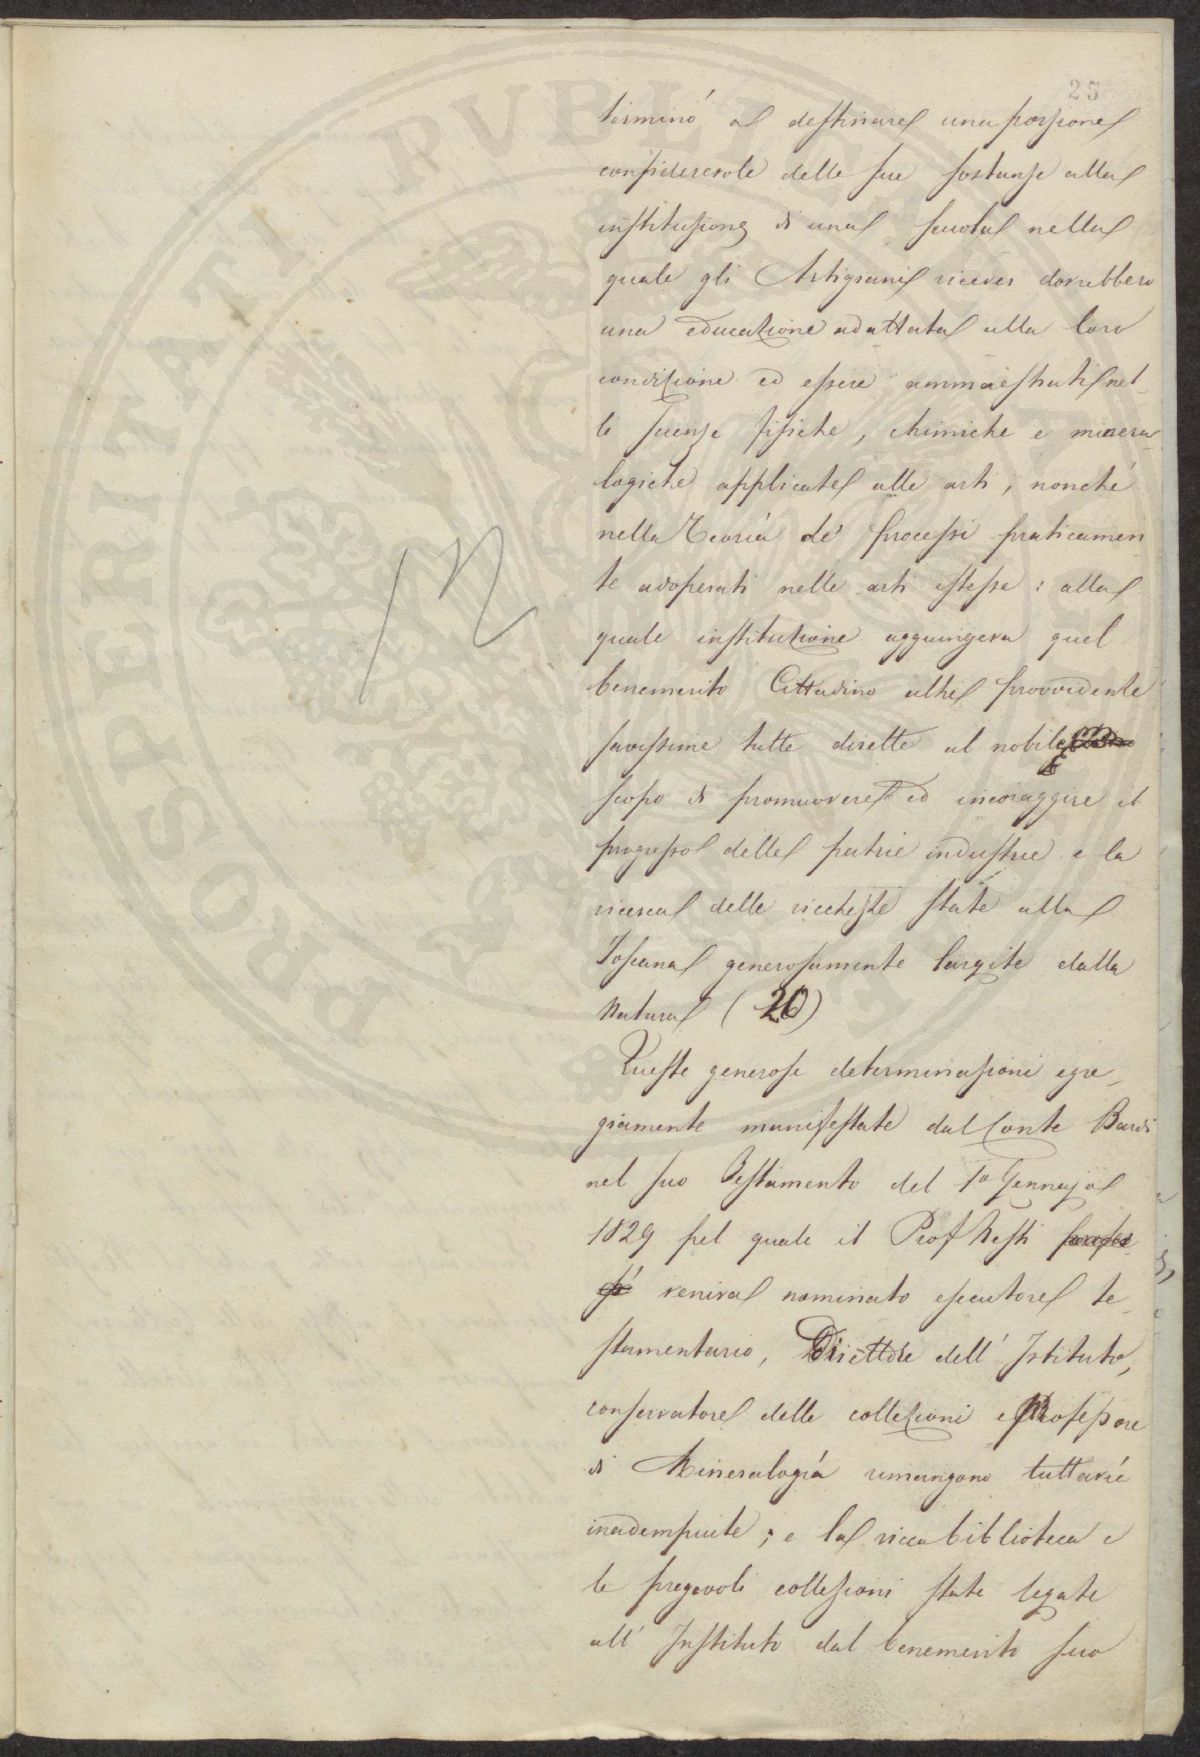 25
terminò a destinare una porzione
considerevole delle sue sostanze alla
instituzione di una scuola nella
quale gli Artigiani ricever dovrebbero
una educazione adattata alla loro
condizione ed essere ammaestrati nel-
le scienze fisiche, chimiche e minera
logiche applicate alle arti, nonché
nella Teoria de' processi praticamen
te adoperati nelle arti istesse: alla
quale instituzione aggiungeva quel
benemerito Cittadino altre provvidenze
savissime tutte dirette al nobile
scopo di promuovere ed incoraggire il
progresso delle patrie industrie e la
ricerca delle ricchezze state alla
Toscana generosamente largite dalla
Natura (20)
Queste generose determinazioni egre-
giamente manifestate dal Conte Bardi
nel suo Testamento del 1o Gennajo
1829 pel quale il Prof Nesti
veniva nominato esecutore te-
stamentario, Direttore dell' Istituto,
conservatore delle collezioni e Professore
di Mineralogía rimangono tuttavie
inadempiute; e la ricca biblioteca e
le pregevoli collezioni state legate
all' Instituto dal benemerito suo
PROSPERITATI PVBLICAE